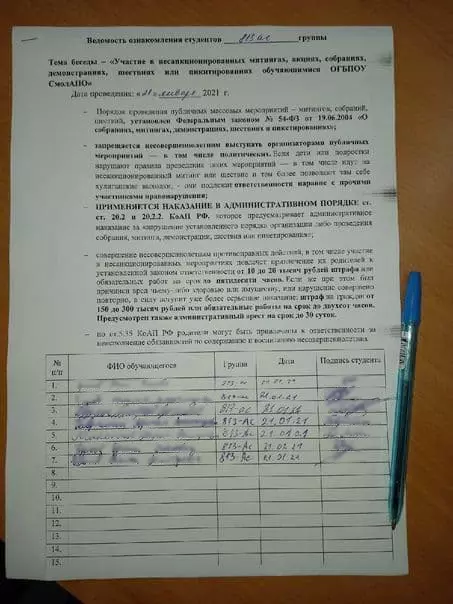 Ведомость ознакомления студентов 813 ас группы
Тема беседы – «Участие в несанкционированных митингах, акциях, собраниях,
демонстрациях, шествиях или пикетированиях обучающимися ОГБПОУ
СмолАПО»
Дата проведения: «21» января 2021 г.
– Порядок проведения публичных массовых мероприятий – митингов, собраний,
шествий, установлен Федеральным законом № 54-ФЗ от 19.06.2004 «О
собраниях, митингах, демонстрациях, шествиях и пикетированиях»;
– запрещается несовершеннолетним выступать организаторами публичных
мероприятий — в том числе политических. Если дети или подростки
нарушают правила проведения таких мероприятий — в том числе идут на
несанкционированный митинг или шествие и тем более позволяют там себе
хулиганские выходки, - они подлежат ответственности наравне с прочими
участниками правонарушения;
– ПРИМЕНЯЕТСЯ НАКАЗАНИЕ В АДМИНИСТРАТИВНОМ ПОРЯДКЕ ст.
ст. 20.2 и 20.2.2. КоАП РФ, которое предусматривает административное
наказание за нарушение установленного порядка организации либо проведения
собрания, митинга, демонстрации, шествия или пикетирования;
– совершение несовершеннолетним противоправных действий, в том числе участие
в несанкционированных мероприятиях повлечет привлечение их родителей к
установленной законом ответственности от 10 до 20 тысяч рублей штрафа или
обязательных работ на срок до пятидесяти часов. Если же при этом был
причинен вред чьему-либо здоровью или имуществу, или нарушение совершено
повторно, в силу вступит уже более серьезное наказание: штраф на граждан от
150 до 300 тысяч рублей или обязательные работы на срок до двухсот часов.
Предусмотрен также административный арест на срок до 30 суток.
– по ст.5.35 КоАП РФ родители могут быть привлечены к ответственности за
неисполнение обязанностей по содержанию и воспитанию несовершеннолетних
№ п/п ФИО обучающегося Группа Дата Подпись студента
1. 813-ас 21.01.21
2. 813-ас 21.01.21
3. 813-АС 21.01.21
4. 813-АС 21.01.21
5. 813-АС 21.01.21
6. 813-АС 21.01.21
7. 813-АС 21.01.21
8.
9.
10.
11.
12.
13.
14.
15.